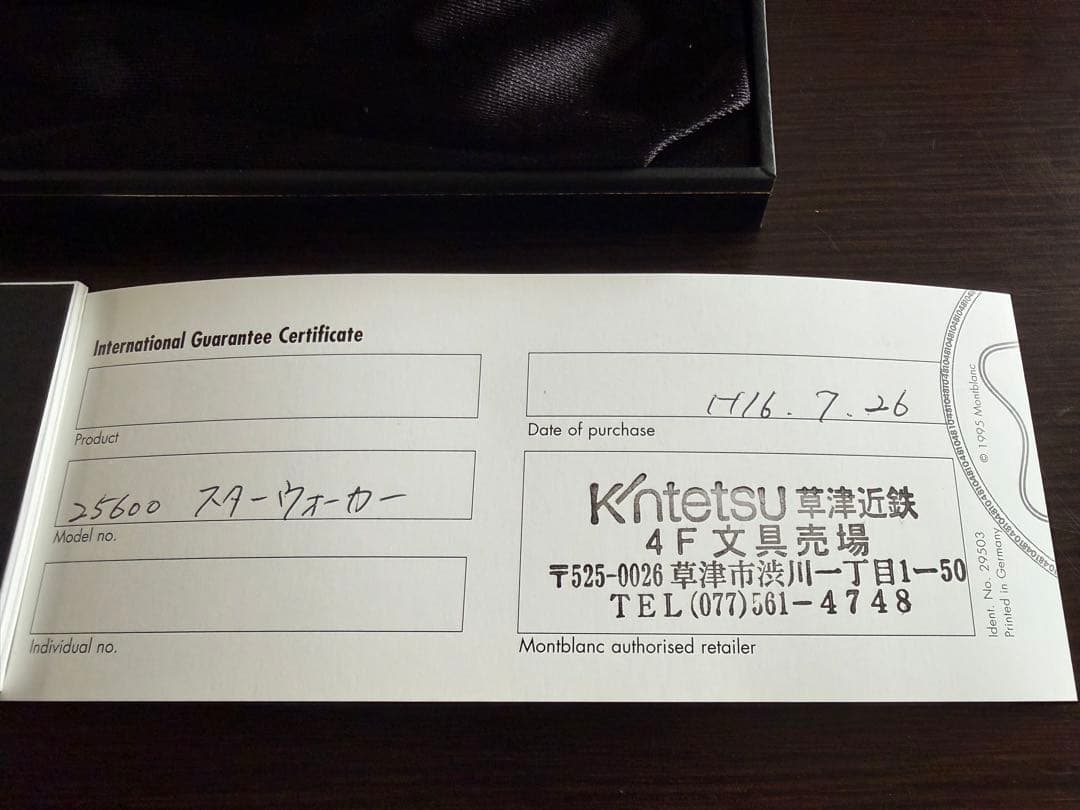 International Guarantee Certificate
Product
25600 スターウォーカー
Model no.
Individual no.
H16.7.26
Date of purchase
Kintetsu 草津近鉄
4F 文具売場
〒525-0026 草津市渋川一丁目1-50
TEL(077)561-4748
Montblanc authorised retailer
© 1995 Montblanc
Ident. No. 29503
Printed in Germany